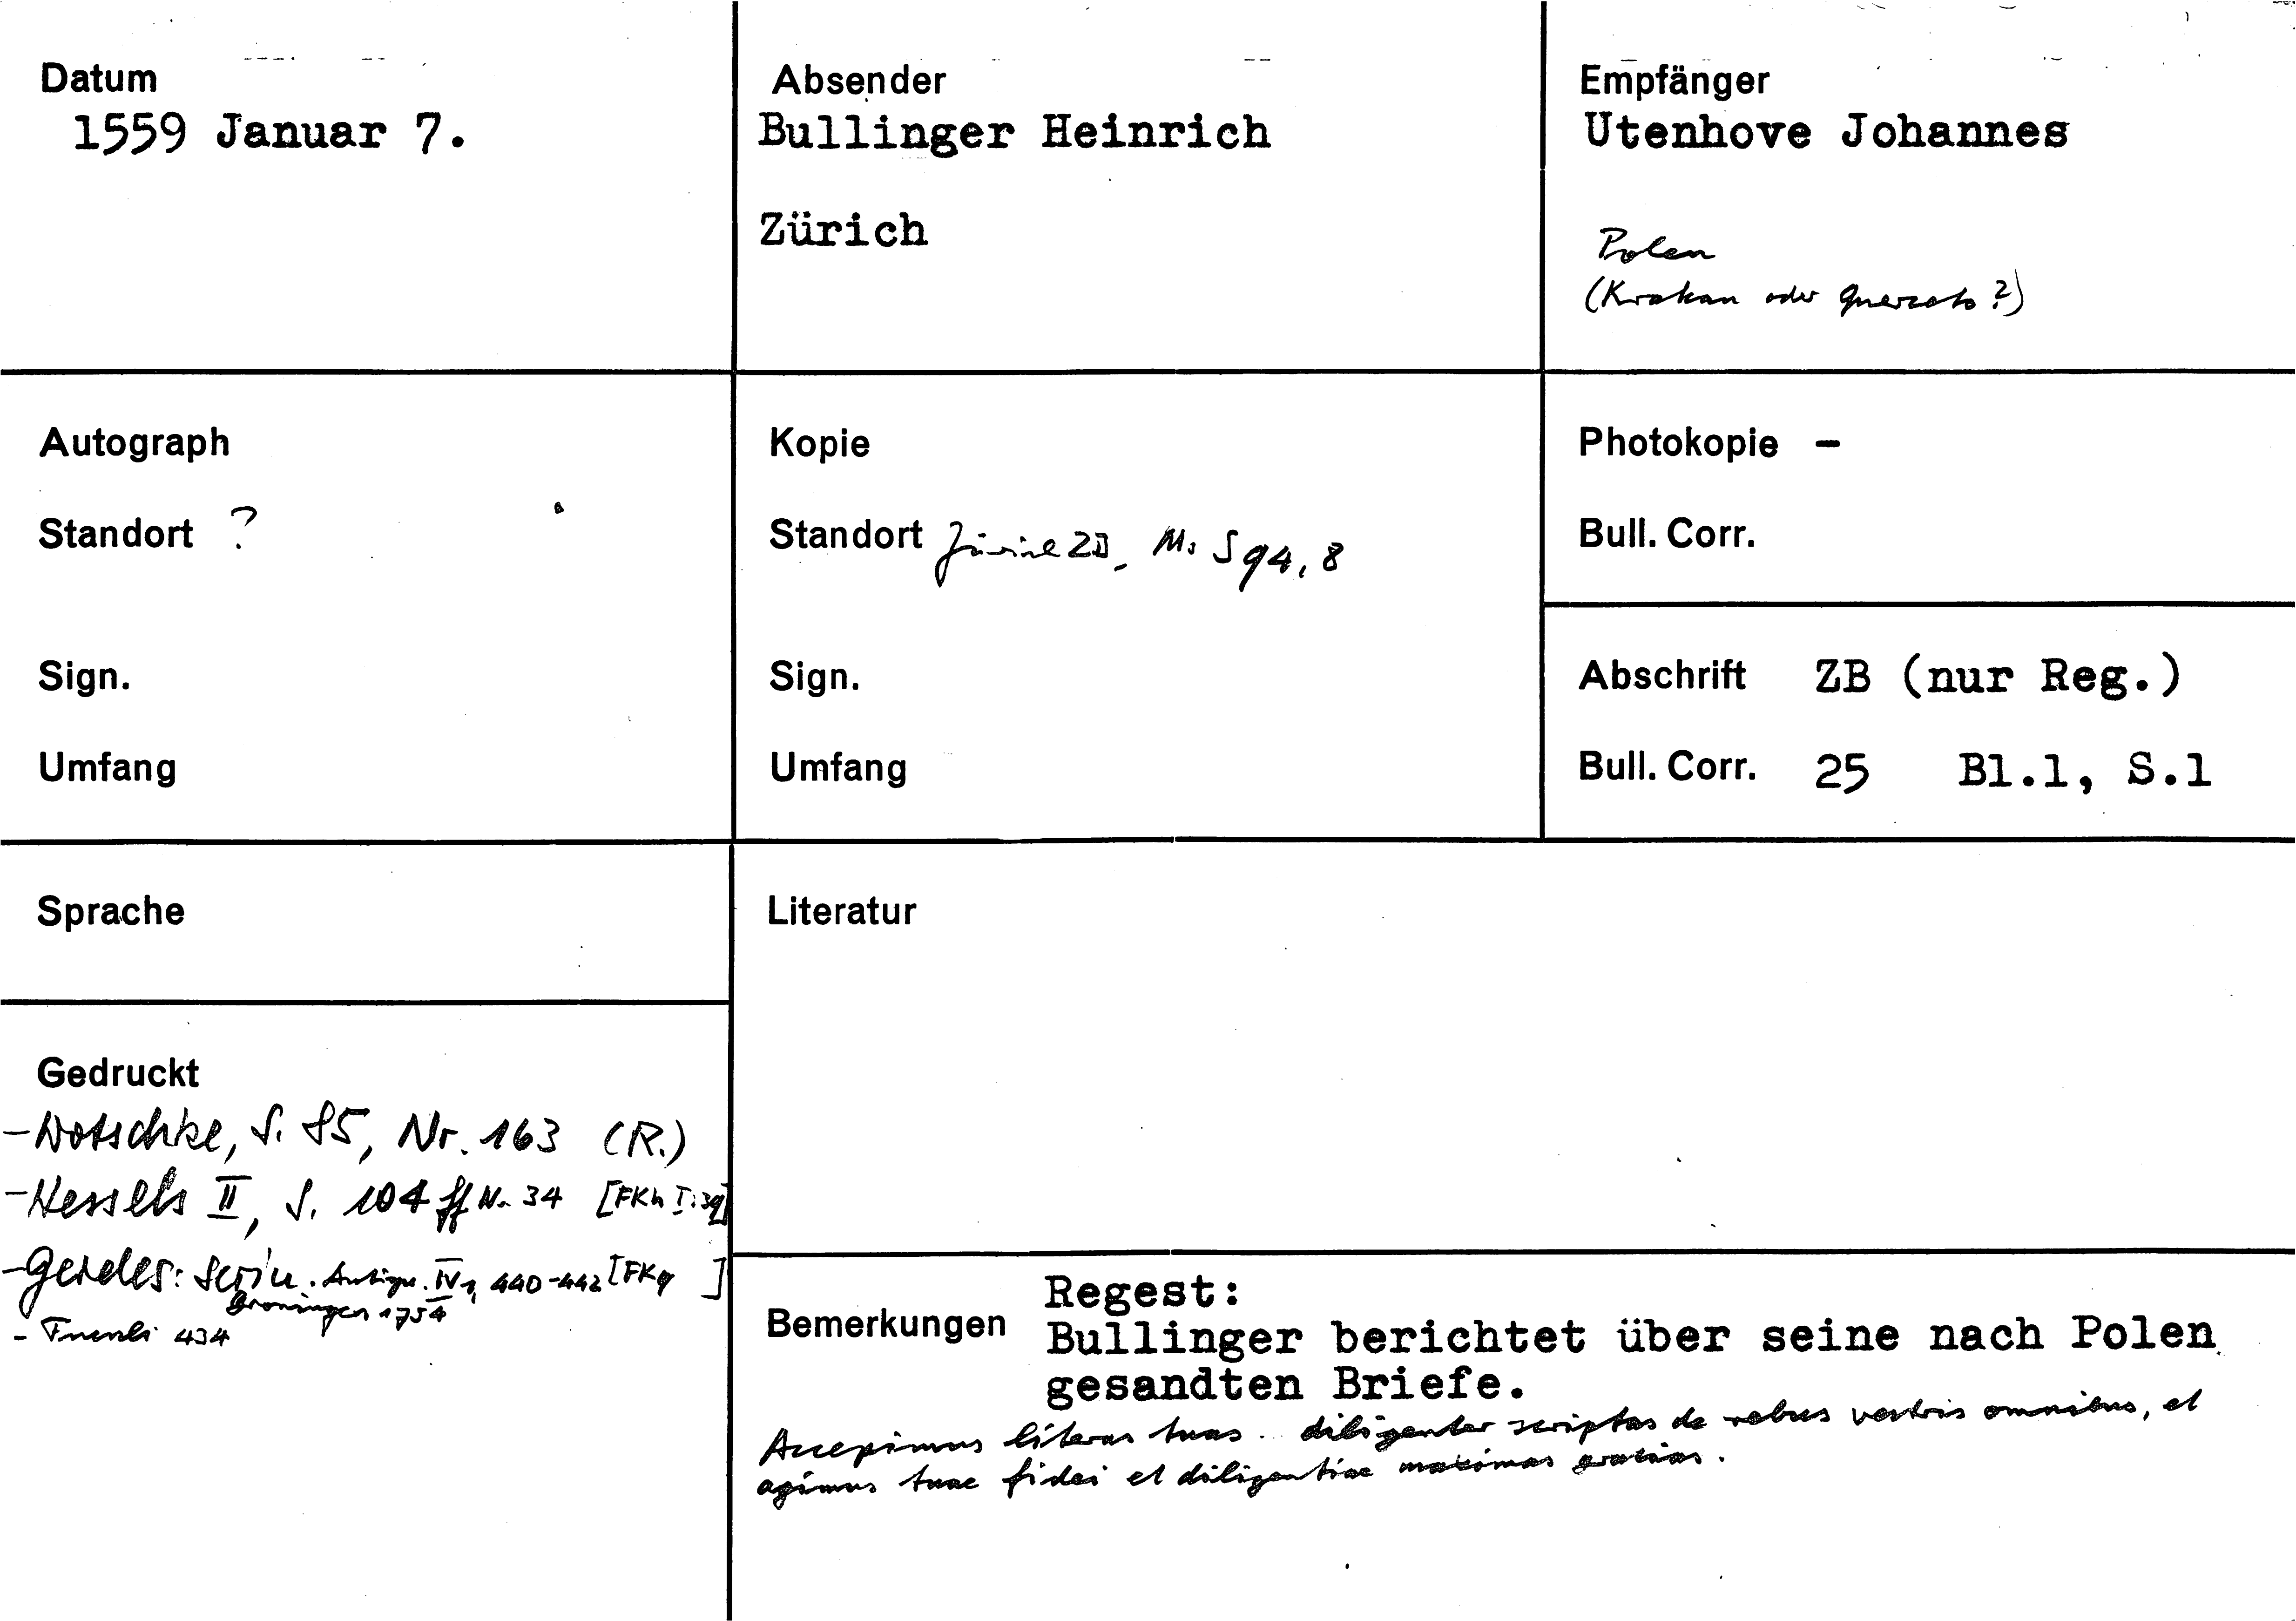 Datum
1559 Januar 7.
Absender
Bullinger Heinrich
Zürich
Empfänger
Utenhove Johannes
Polen
(Krakau oder ?)
Autograph
Standort ?
Sign.
Umfang
Kopie
Standort Zürich ZB, Ms S 94, 8
Sign.
Umfang
Photokopie -
Bull. Corr.
Abschrift ZB (nur Reg.)
Bull. Corr. 25 Bl.1, S.1
Sprache
Gedruckt
- Wotschke, S. 85, Nr. 163 (R.)
- Hessels II, S. 104 ff Nr. 34 [FKh I:39]
- Gerdes: Scrin. Antiqu. IV1, 440-442 [FKg ]
Groningen 1754
- Fuesli 434
Literatur
Bemerkungen
Regest:
Bullinger berichtet über seine nach Polen
gesandten Briefe.
Accepimus literas tuas .. diligenter scriptas de rebus vestris omnibus, et
agimus tuae fidei et diligentiae maximas gratias.